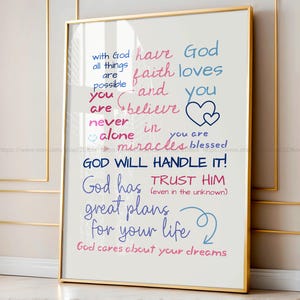 with God
all things
are
possible
have
faith
and
believe
in
miracles
God
loves
you
you
are
never
alone
you are
blessed
GOD WILL HANDLE IT!
God has
great plans
for your life
TRUST HIM
(even in the unknown)
God cares about your dreams